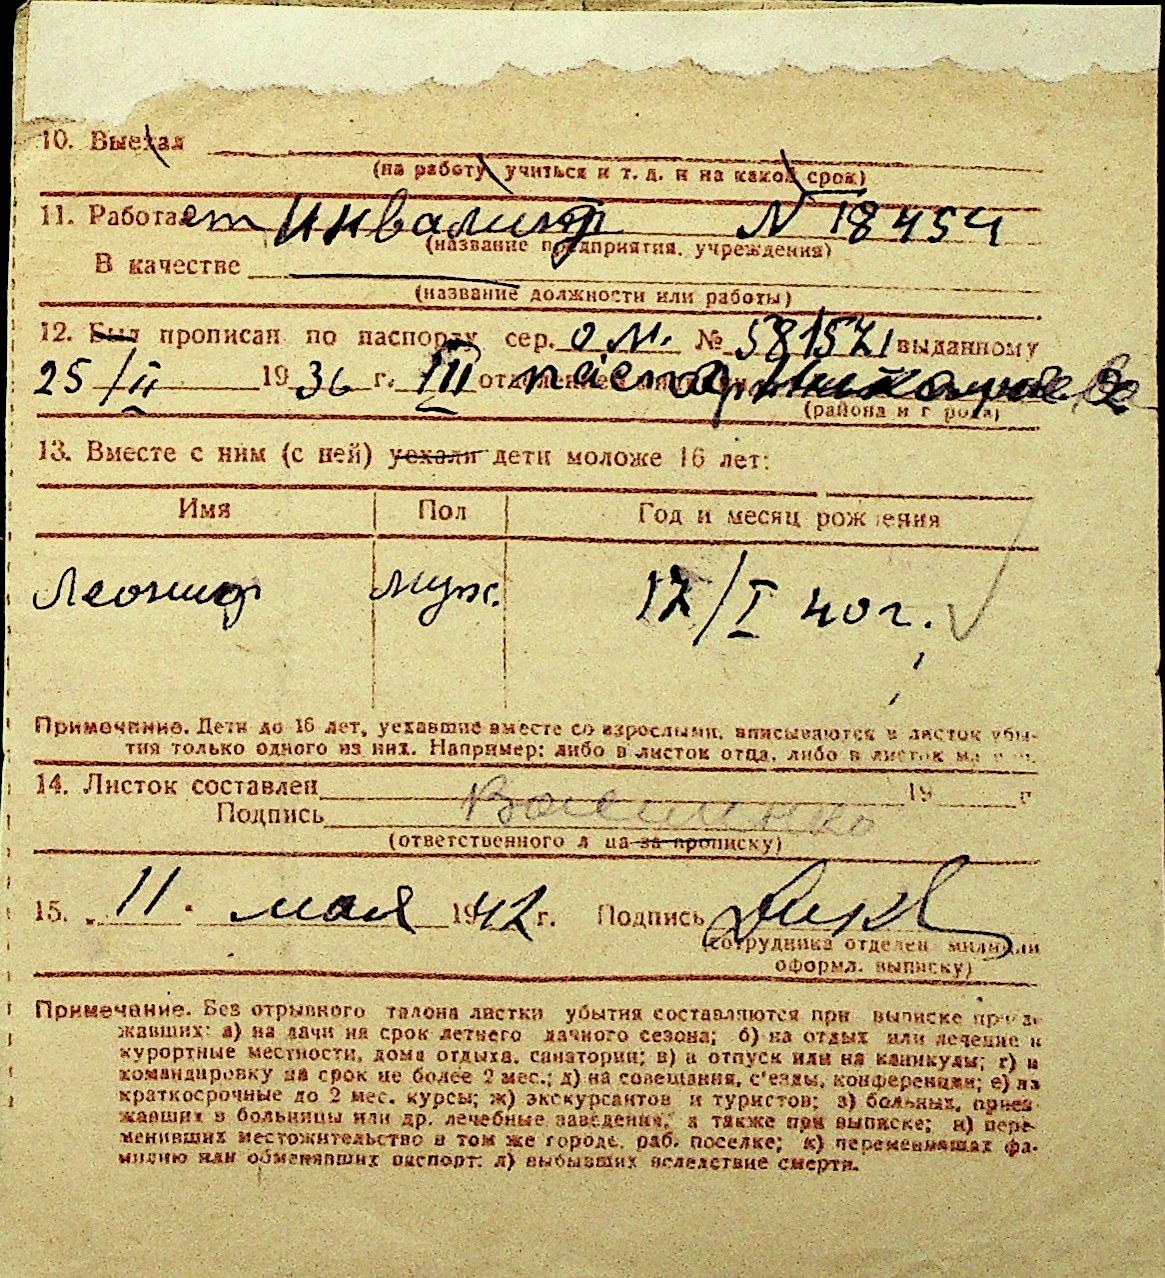 10. Выехал
(на работу, учиться и т. д. и на какой срок)
11. Работает инвалид N 18454
(название предприятия, учреждения)
В качестве
(название должности или работы)
12. Был прописан по паспорту сер. ОМ. № 581571 выданному
25/II 1936 г. III отделением
(района и города)
13. Вместе с ним (с ней) уехали дети моложе 16 лет:
Имя Пол Год и месяц рождения
Леонид муж. 17/I 40 г.
Примечание. Дети до 16 лет, уехавшие вместе со взрослыми, вписываются в листок убы-
тия только одного из них. Например: либо в листок отца, либо в листок
14. Листок составлен 19 г
Подпись
(ответственного лица за прописку)
15. „ 11. мая 1942 г. Подпись
(сотрудника отделен милиции
оформл. выписку)
Примечание. Без отрывного талона листки убытия составляются при выписке приез-
жавших: а) на дачи на срок летнего дачного сезона; б) на отдых или лечение в
курортные местности, дома отдыха, санатории; в) в отпуск или на каникулы; г) в
командировку на срок не более 2 мес.; д) на совещания, с'езды, конференции; е) на
краткосрочные до 2 мес. курсы; ж) экскурсантов и туристов; з) больных, приез-
жавших в больницы или др. лечебные заведения, а также при выписке; и) пере-
менивших местожительство в том же городе, раб. поселке; к) переменивших фа-
милию или обменявших паспорт; л) выбывших вследствие смерти.